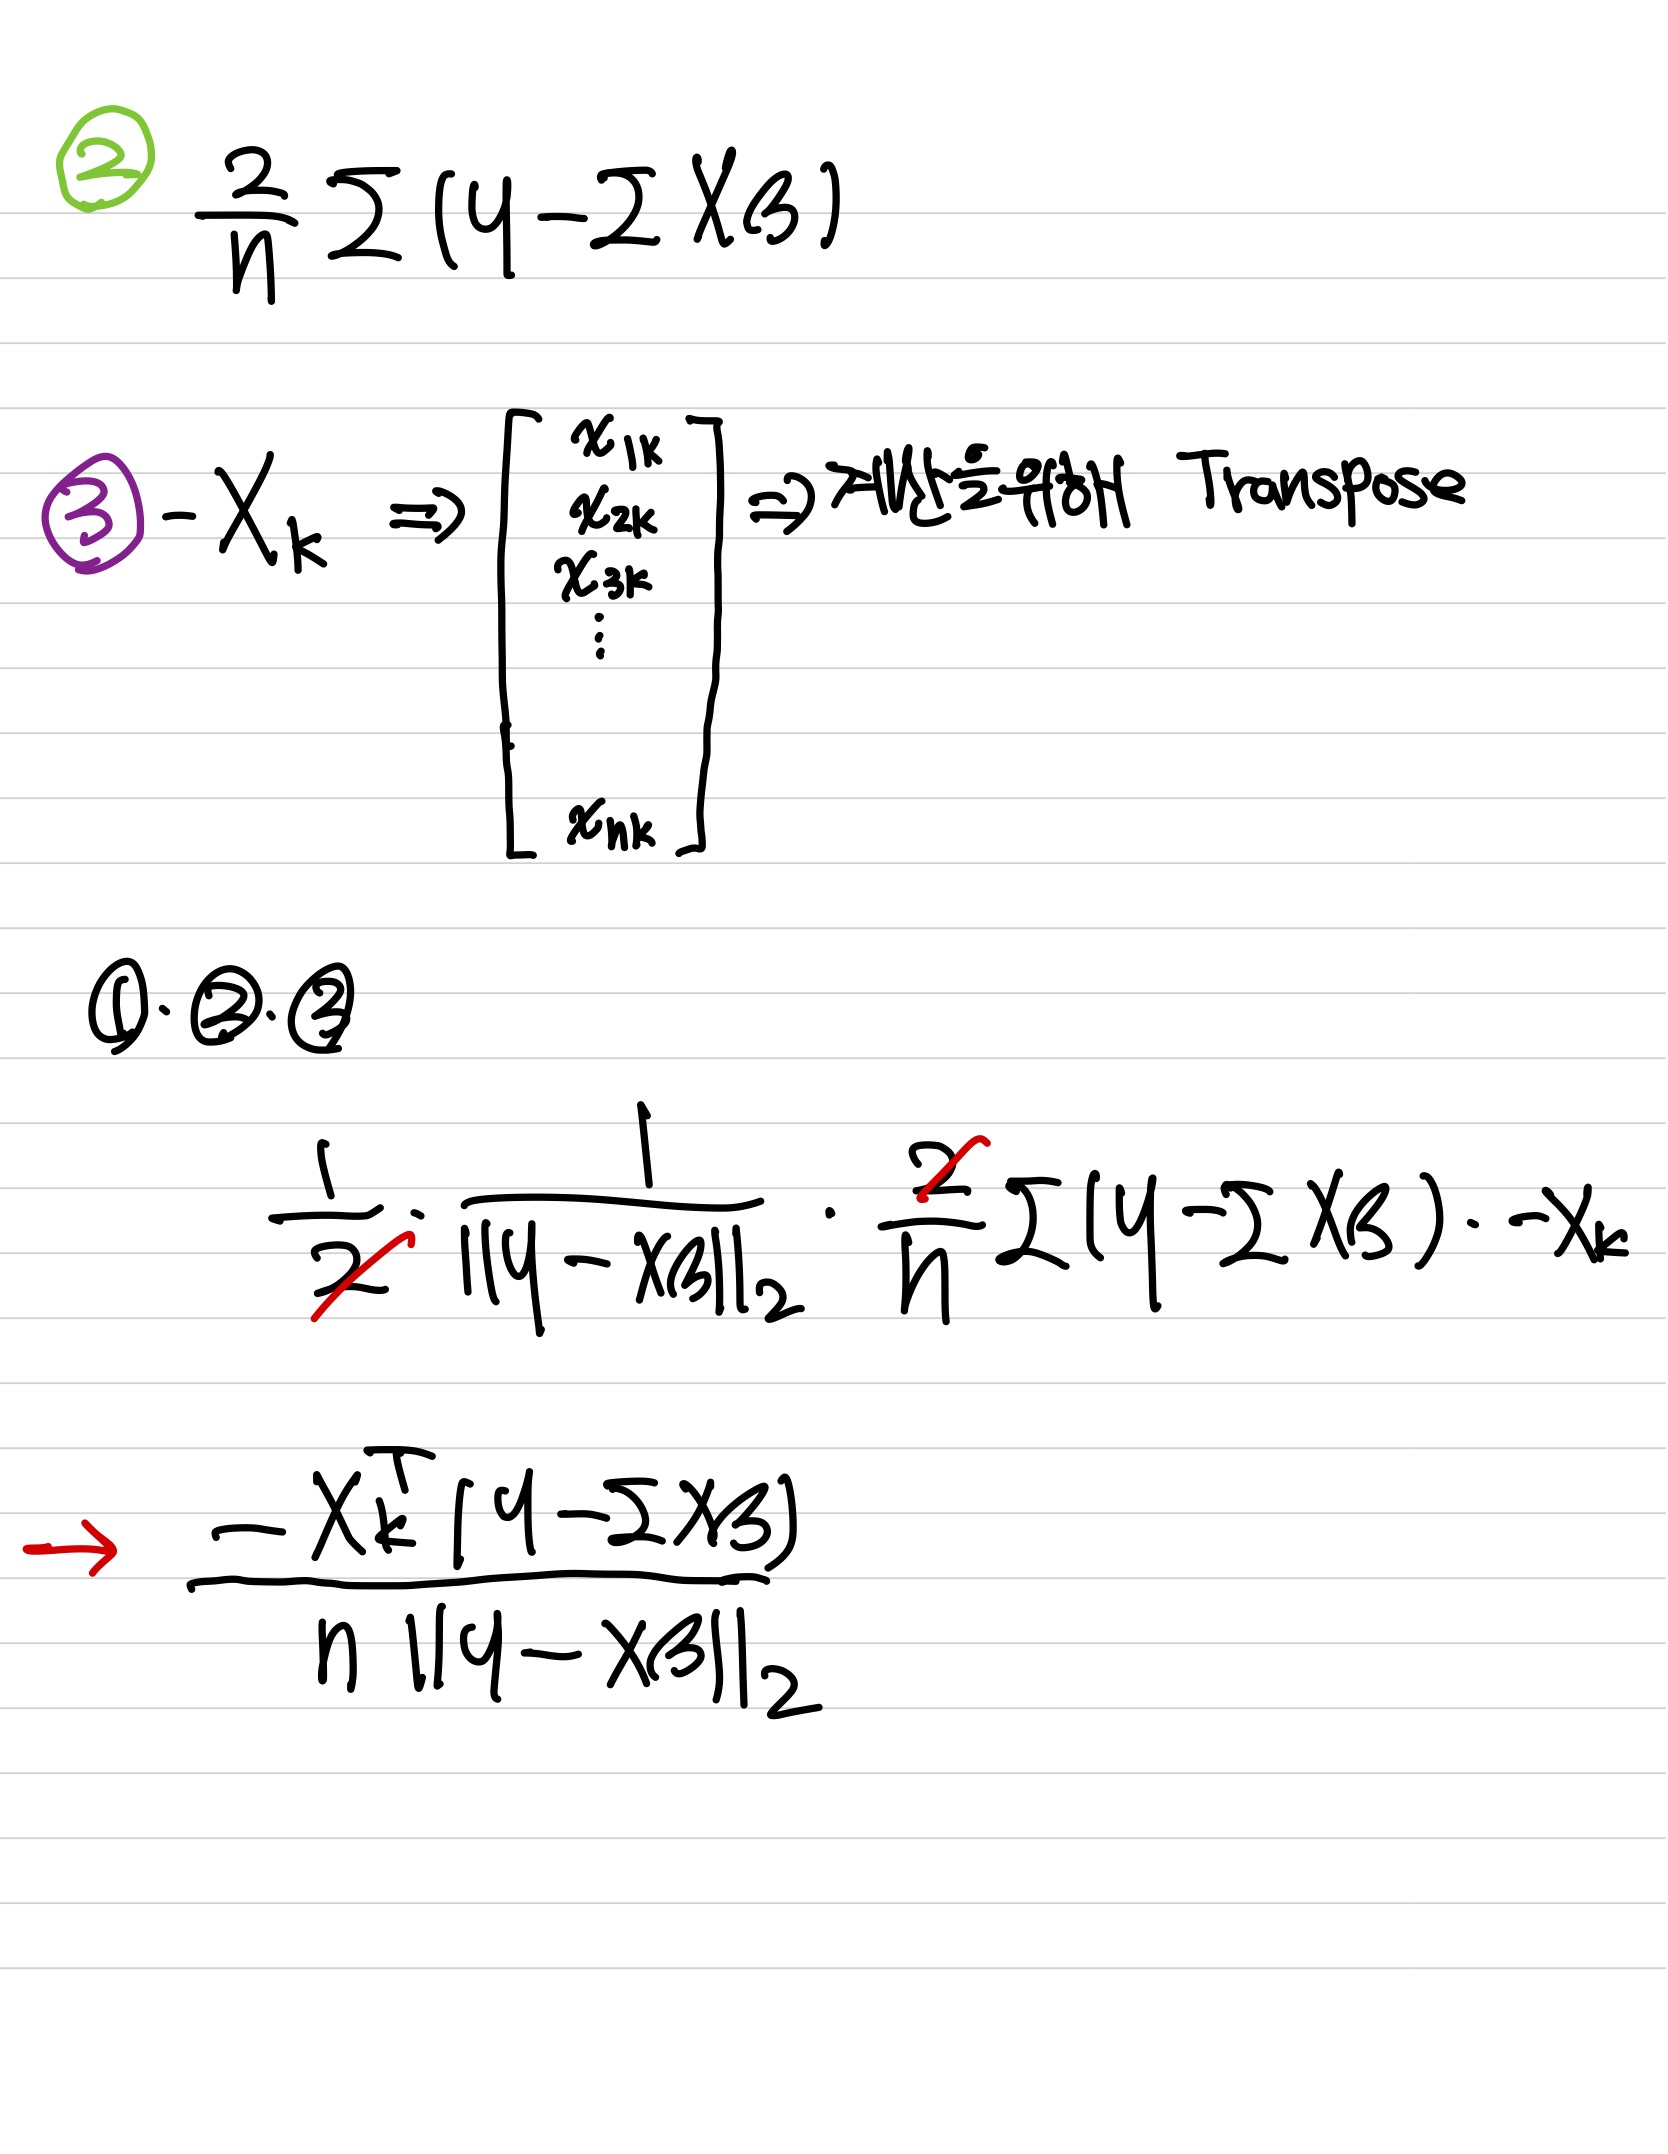 ② 2/n Σ(y-ΣXβ)
③ -Xₖ ⇒ [x₁ₖ x₂ₖ x₃ₖ ⋮ xₙₖ] ⇒ 계산을 위해 Transpose
①·②·③
1/2 · 1/||y-Xβ||₂ · 2/n Σ(y-ΣXβ)·-Xₖ
→ -Xₖᵀ(y-ΣXβ) / n||y-Xβ||₂